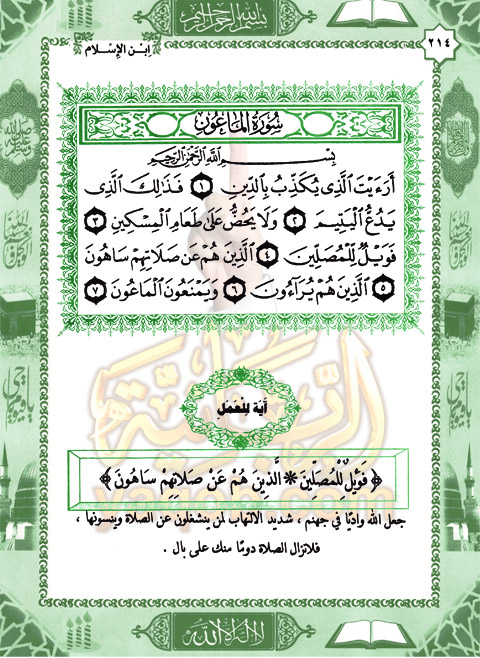 بسم الله الرحمن الرحيم
ابن الإسلام
٢١٤
سُورَةُ المَاعُونَ
بِسْمِ اللَّهِ الرَّحْمَنِ الرَّحِيمِ
أَرَءَيْتَ الَّذِى يُكَذِّبُ بِالدِّينِ ١ فَذَلِكَ الَّذِى
يَدُعُّ الْيَتِيمَ ٢ وَلَا يَحُضُّ عَلَى طَعَامِ الْمِسْكِينِ ٣
فَوَيْلٌ لِّلْمُصَلِّينَ ٤ الَّذِينَ هُمْ عَن صَلَاتِهِمْ سَاهُونَ
٥ الَّذِينَ هُمْ يُرَآءُونَ ٦ وَيَمْنَعُونَ الْمَاعُونَ ٧
آيَة لِلْعَمَلِ
﴿ فَوَيْلٌ لِّلْمُصَلِّينَ * الَّذِينَ هُمْ عَنْ صَلَاتِهِمْ سَاهُونَ ﴾
جعل الله واديًا في جهنم ، شديد الالتهاب لمن ينشغلون عن الصلاة وينسونها ،
فلاتزال الصلاة دومًا منك على بال .
لا إله إلا الله